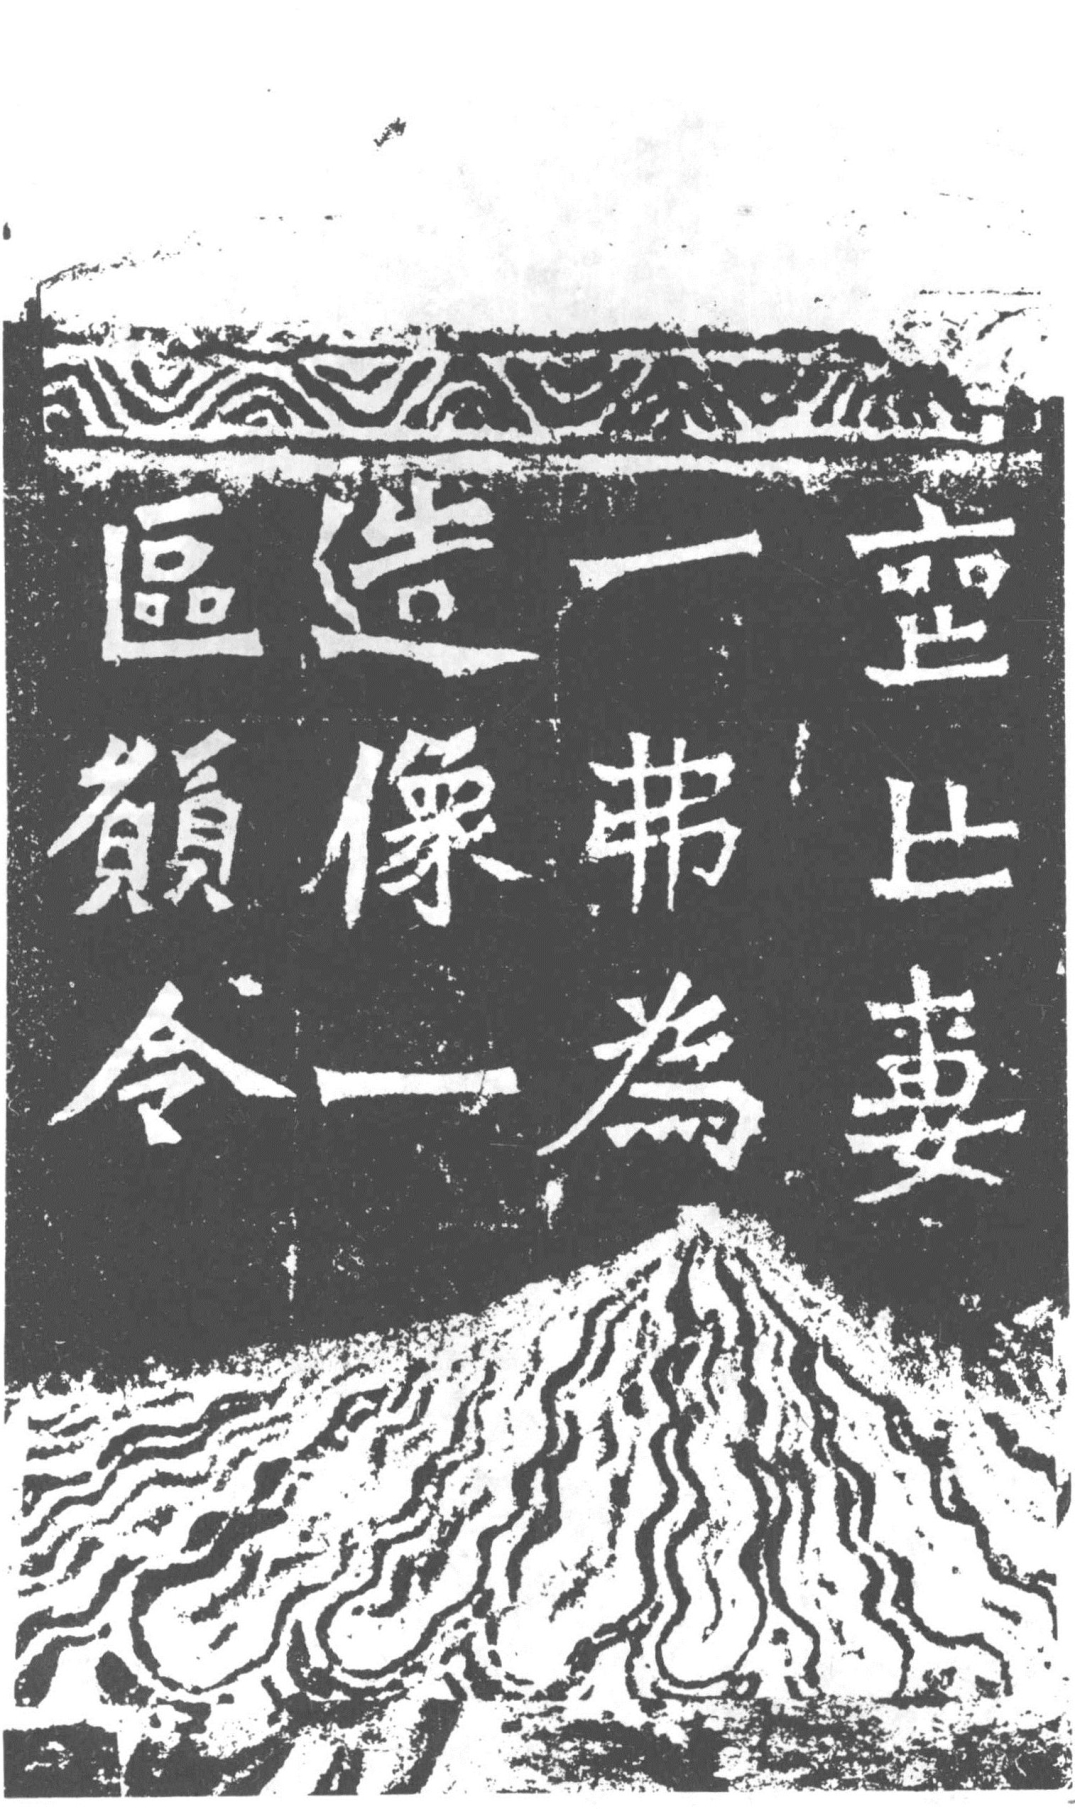 喪亡妻
一弗為
造像一
區願令